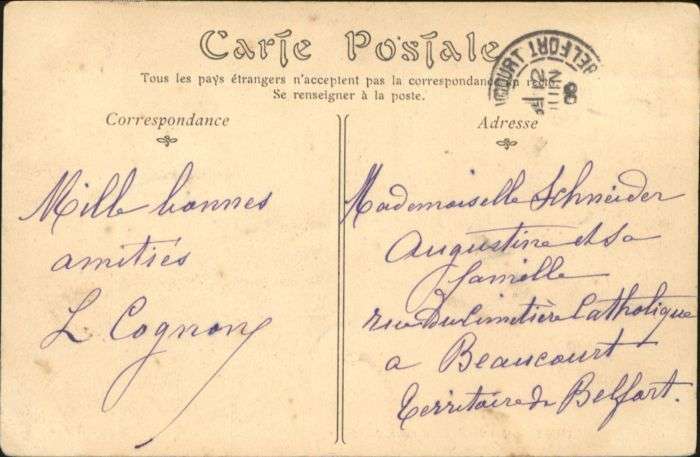 Carte Postale
Tous les pays étrangers n'acceptent pas la correspondance au recto.
Se renseigner à la poste.
Correspondance
Adresse
BELFORT
Mille bonnes
amitiés
L Cognon
Mademoiselle Schneider
Augustine et sa
famille
rue Du Cimetière Catholique
a Beaucourt
Territoire de Belfort.